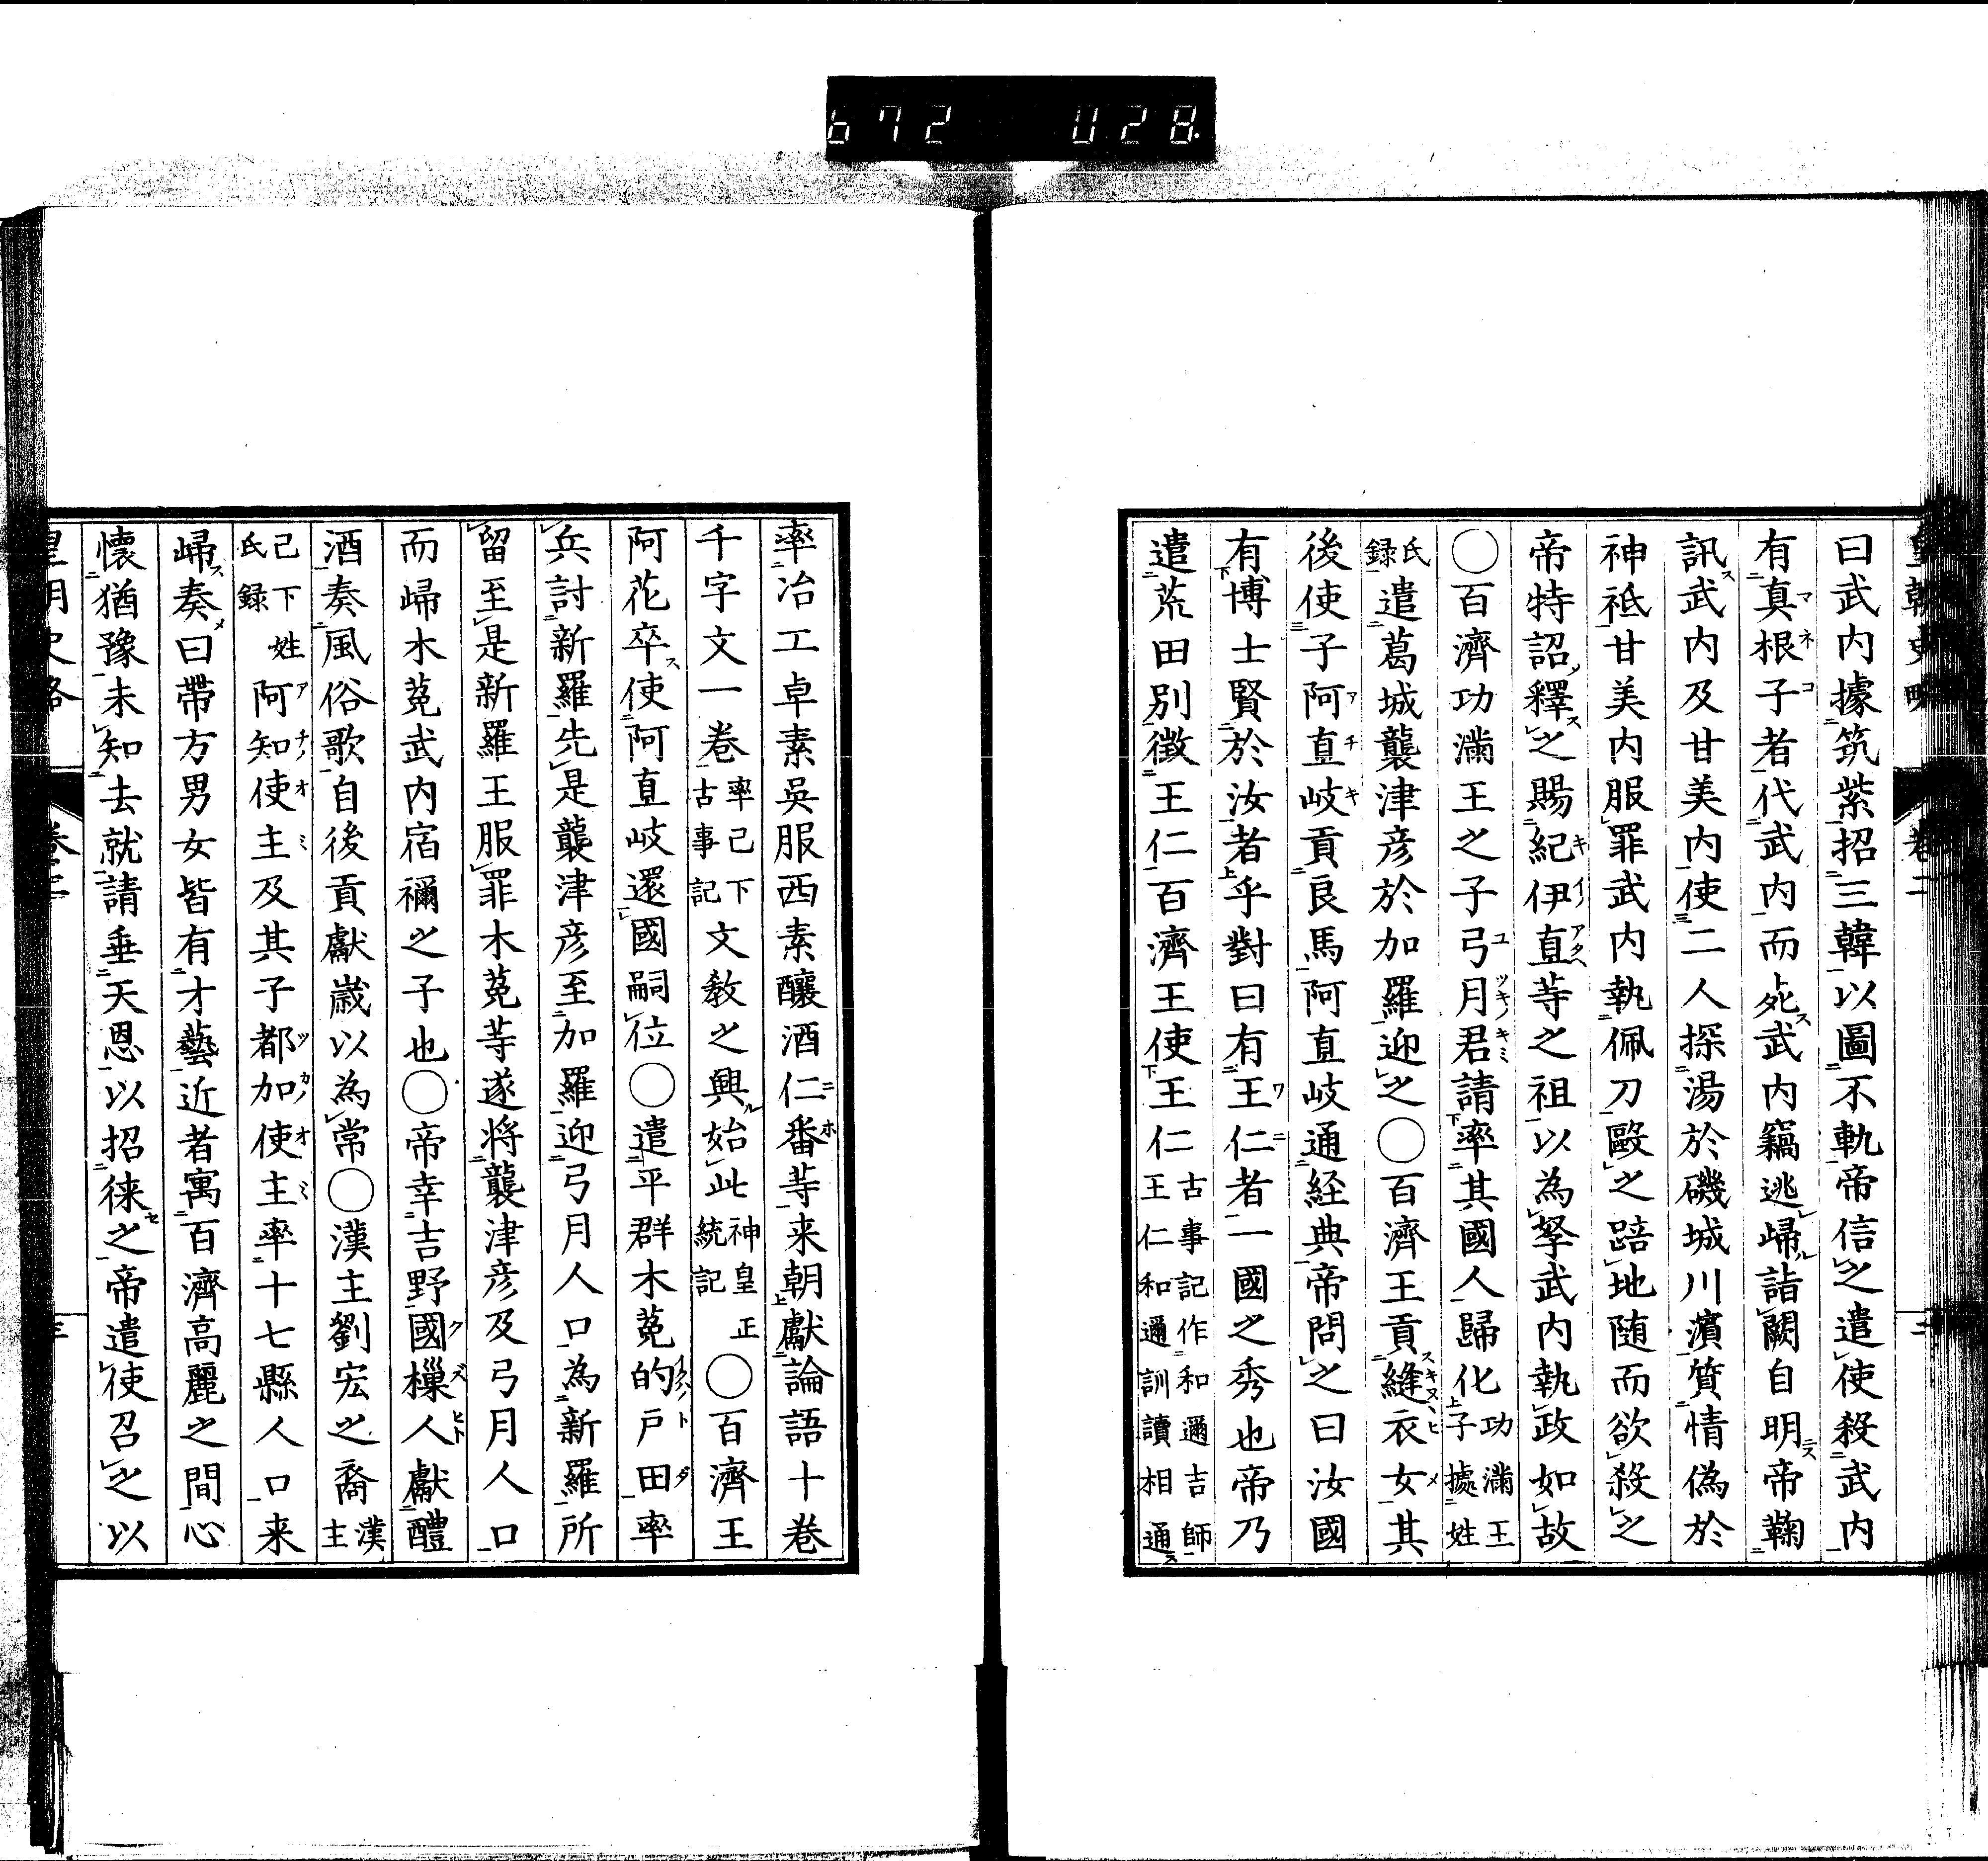 672 028
皇朝史略 卷二
曰武内據筑紫招三韓以圖不軌帝信之遣使殺武内
有真根子者代武内而死武内竊逃歸詣闕自明帝鞠
訊武内及甘美内使二人探湯於磯城川濱質情偽於
神祇甘美内服罪武内執佩刀毆之踣地随而欲殺之
帝特詔釋之賜紀伊直等之祖以為孥武内執政如故
〇百濟功滿王之子弓月君請率其國人歸化功滿王子據姓
氏録遣葛城襲津彦於加羅迎之〇百濟王貢縫衣女其
後使子阿直岐貢良馬阿直岐通経典帝問之曰汝國
有博士賢於汝者乎對曰有王仁者一國之秀也帝乃
遣荒田別徴王仁百濟王使王仁古事記作和邇吉師王仁和邇訓讀相通
率冶工卓素呉服西素釀酒仁番等来朝獻論語十巻
千字文一巻率已下古事記文教之興始此神皇正統記〇百濟王
阿花卒使阿直岐還國嗣位〇遣平群木菟的戸田率
兵討新羅先是襲津彦至加羅迎弓月人口為新羅所
留至是新羅王服罪木菟等遂将襲津彦及弓月人口
而歸木菟武内宿禰之子也〇帝幸吉野國樔人獻醴
酒奏風俗歌自後貢獻歳以為常〇漢主劉宏之裔漢主
已下姓氏録阿知使主及其子都加使主率十七縣人口来
歸奏曰帶方男女皆有才藝近者寓百濟高麗之間心
懷猶豫未知去就請垂天恩以招徠之帝遣使召之以